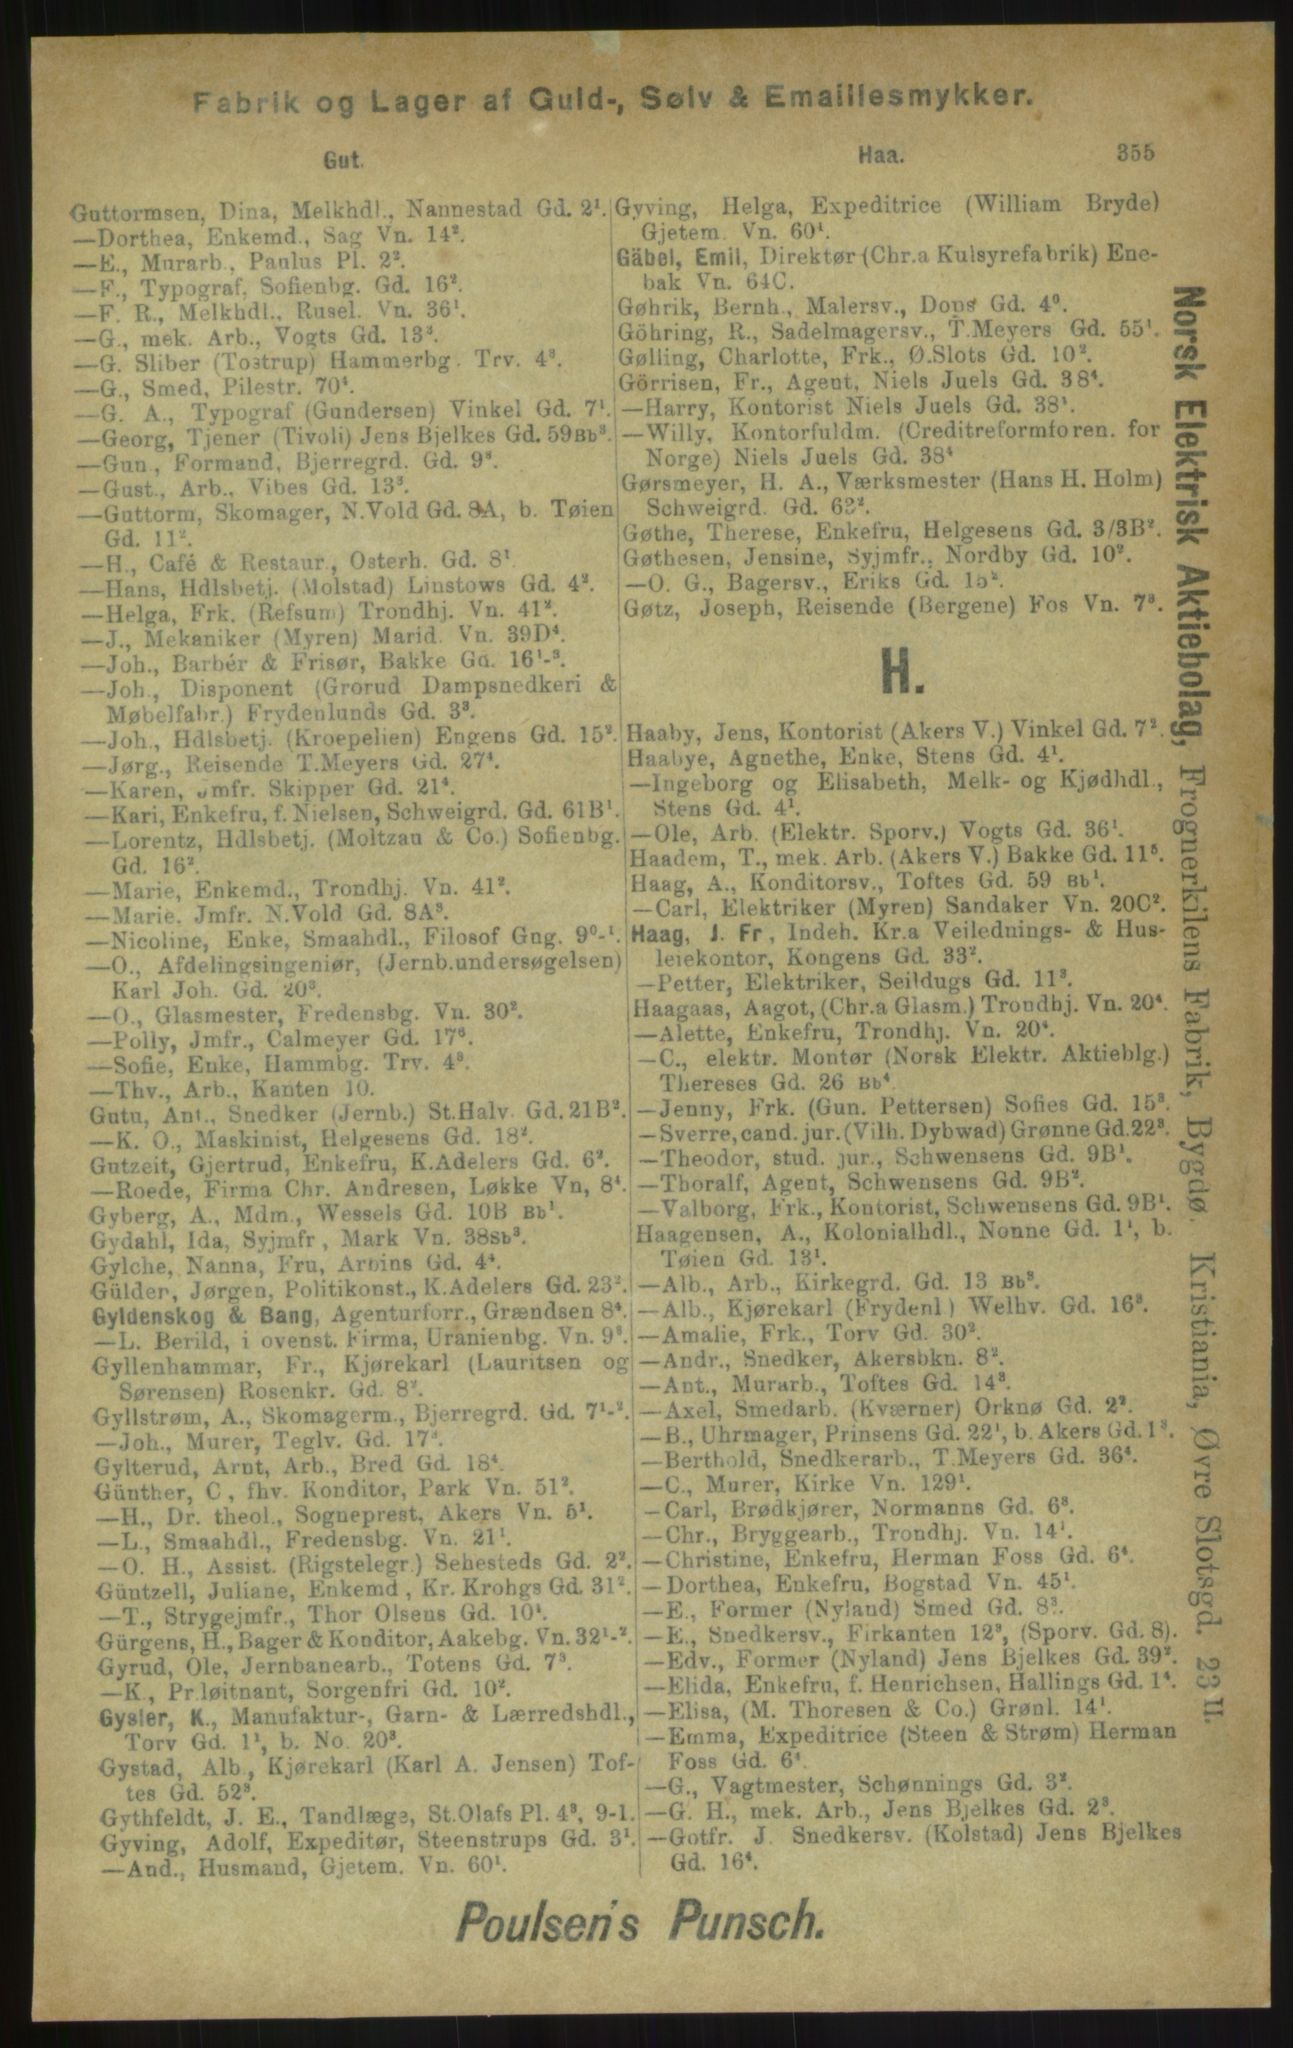 Fabrik og Lager af Guld-, Sølv & Emaillesmykker.
Gut.
Haa.
355
Guttormsen, Dina, Melkhdl., Nannestad Gd. 2¹.
—Dorthea, Enkemd., Sag Vn. 14².
—E., Murarb., Paulus Pl. 2².
—F., Typograf, Sofienbg. Gd. 16².
—F. R., Melkhdl., Rusel. Vn. 36¹.
—G., mek. Arb., Vogts Gd. 13³.
—G. Sliber (Tostrup) Hammerbg. Trv. 4³.
—G., Smed, Pilestr. 70⁴.
—G. A., Typograf (Gundersen) Vinkel Gd. 7¹.
—Georg, Tjener (Tivoli) Jens Bjelkes Gd. 59Bb³.
—Gun., Formand, Bjerregrd. Gd. 9³.
—Gust., Arb., Vibes Gd. 13³.
—Guttorm, Skomager, N.Vold Gd. 8A, b. Tøien
Gd. 11².
—H., Café & Restaur., Osterh. Gd. 8¹
—Hans, Hdlsbetj. (Molstad) Linstows Gd. 4².
—Helga, Frk. (Refsum) Trondhj. Vn. 41².
—J., Mekaniker (Myren) Marid. Vn. 39D⁴.
—Joh., Barbér & Frisør, Bakke Gd. 16¹-³.
—Joh., Disponent (Grorud Dampsnedkeri &
Møbelfabr.) Frydenlunds Gd. 3³.
—Joh., Hdlsbetj. (Kroepelien) Engens Gd. 15².
—Jørg., Reisende T.Meyers Gd. 27⁴.
—Karen, Jmfr. Skipper Gd. 21⁴.
—Kari, Enkefru, f. Nielsen, Schweigrd. Gd. 61B¹.
—Lorentz, Hdlsbetj. (Moltzau & Co.) Sofienbg.
Gd. 16².
—Marie, Enkemd., Trondhj. Vn. 41².
—Marie, Jmfr. N.Vold Gd. 8A³.
—Nicoline, Enke, Smaahdl., Filosof Gng. 9⁰-¹.
—O., Afdelingsingeniør, (Jernb.undersøgelsen)
Karl Joh. Gd. 20³.
—O., Glasmester, Fredensbg. Vn. 30².
—Polly, Jmfr., Calmeyer Gd. 17⁵.
—Sofie, Enke, Hammbg. Trv. 4³.
—Thv., Arb., Kanten 10.
Gutu, Ant., Snedker (Jernb.) St.Halv. Gd. 21B².
—K. O., Maskinist, Helgesens Gd. 18².
Gutzeit, Gjertrud, Enkefru, K.Adelers Gd. 6².
—Roede, Firma Chr. Andresen, Løkke Vn, 8⁴.
Gyberg, A., Mdm., Wessels Gd. 10B Bb¹.
Gydahl, Ida, Syjmfr, Mark Vn. 38Sb³.
Gylche, Nanna, Fru, Arbins Gd. 4⁴.
Gülder, Jørgen, Politikonst., K.Adelers Gd. 23².
Gyldenskog & Bang, Agenturforr., Grændsen 8⁴.
—L. Berild, i ovenst. Firma, Uranienbg. Vn. 9³.
Gyllenhammar, Fr., Kjørekarl (Lauritsen og
Sørensen) Rosenkr. Gd. 8².
Gyllstrøm, A., Skomagerm., Bjerregrd. Gd. 7¹-².
—Joh., Murer, Teglv. Gd. 17³.
Gylterud, Arnt, Arb., Bred Gd. 18⁴.
Günther, C, fhv. Konditor, Park Vn. 51².
—H., Dr. theol., Sogneprest, Akers Vn. 5¹.
—L., Smaahdl., Fredensbg. Vn. 21¹.
—O. H., Assist. (Rigstelegr.) Sehesteds Gd. 2².
Güntzell, Juliane, Enkemd, Kr. Krohgs Gd. 31².
—T., Strygejmfr., Thor Olsens Gd. 10¹.
Gürgens, H., Bager & Konditor, Aakebg. Vn. 32¹-².
Gyrud, Ole, Jernbanearb., Totens Gd. 7³.
—K., Pr.løitnant, Sorgenfri Gd. 10².
Gysler, K., Manufaktur-, Garn- & Lærredshdl.,
Torv Gd. 1¹, b. No. 20³.
Gystad, Alb., Kjørekarl (Karl A. Jensen) Tof-
tes Gd. 52³.
Gythfeldt, J. E., Tandlæge, St.Olafs Pl. 4³, 9-1.
Gyving, Adolf, Expeditør, Steenstrups Gd. 3¹.
—And., Husmand, Gjetem. Vn. 60¹.
Gyving, Helga, Expeditrice (William Bryde)
Gjetem. Vn. 60¹.
Gäbel, Emil, Direktør (Chr.a Kulsyrefabrik) Ene-
bak Vn. 64C.
Gøhrik, Bernh., Malersv., Dops Gd. 4⁰.
Göhring, R., Sadelmagersv., T.Meyers Gd. 55¹.
Gølling, Charlotte, Frk., Ø.Slots Gd. 10².
Görrisen, Fr., Agent, Niels Juels Gd. 38⁴.
—Harry, Kontorist Niels Juels Gd. 38¹.
—Willy, Kontorfuldm. (Creditreformforen. for
Norge) Niels Juels Gd. 38⁴
Gørsmeyer, H. A., Værksmester (Hans H. Holm)
Schweigrd. Gd. 63².
Gøthe, Therese, Enkefru, Helgesens Gd. 3/3B².
Gøthesen, Jensine, Syjmfr., Nordby Gd. 10².
—O. G., Bagersv., Eriks Gd. 15².
Gøtz, Joseph, Reisende (Bergene) Fos Vn. 7³.
H.
Haaby, Jens, Kontorist (Akers V.) Vinkel Gd. 7².
Haabye, Agnethe, Enke, Stens Gd. 4¹.
—Ingeborg og Elisabeth, Melk- og Kjødhdl.,
Stens Gd. 4¹.
—Ole, Arb. (Elektr. Sporv.) Vogts Gd. 36¹.
Haadem, T., mek. Arb. (Akers V.) Bakke Gd. 11⁵.
Haag, A., Konditorsv., Toftes Gd. 59 Bb¹.
—Carl, Elektriker (Myren) Sandaker Vn. 20C².
Haag, J. Fr, Indeh. Kr.a Veilednings- & Hus-
leiekontor, Kongens Gd. 33².
—Petter, Elektriker, Seildugs Gd. 11³.
Haagaas, Aagot, (Chr.a Glasm.) Trondhj. Vn. 20⁴.
—Alette, Enkefru, Trondhj. Vn. 20⁴.
—C., elektr. Montør (Norsk Elektr. Aktieblg.)
Thereses Gd. 26 Bb⁴.
—Jenny, Frk. (Gun. Pettersen) Sofies Gd. 15³.
—Sverre, cand. jur. (Vilh. Dybwad) Grønne Gd. 22³.
—Theodor, stud. jur., Schwensens Gd. 9B¹.
—Thoralf, Agent, Schwensens Gd. 9B².
—Valborg, Frk., Kontorist, Schwensens Gd. 9B¹.
Haagensen, A., Kolonialhdl., Nonne Gd. 1¹, b.
Tøien Gd. 13¹.
—Alb., Arb., Kirkegrd. Gd. 13 Bb³.
—Alb., Kjørekarl (Frydenl.) Welhv. Gd. 16³.
—Amalie, Frk., Torv Gd. 30².
—Andr., Snedker, Akersbkn. 8².
—Ant., Murarb., Toftes Gd. 14³.
—Axel, Smedarb. (Kværner) Orknø Gd. 2².
—B., Uhrmager, Prinsens Gd. 22¹, b. Akers Gd. 1³.
—Berthold, Snedkerarb., T.Meyers Gd. 36⁴.
—C., Murer, Kirke Vn. 129¹.
—Carl, Brødkjører, Normanns Gd. 6³.
—Chr., Bryggearb., Trondhj. Vn. 14¹.
—Christine, Enkefru, Herman Foss Gd. 6⁴.
—Dorthea, Enkefru, Bogstad Vn. 45¹.
—E., Former (Nyland) Smed Gd. 8³.
—E., Snedkersv., Firkanten 12³, (Sporv. Gd. 8).
—Edv., Former (Nyland) Jens Bjelkes Gd. 39².
—Elida, Enkefru, f. Henrichsen, Hallings Gd. 1⁴.
—Elisa, (M. Thoresen & Co.) Grønl. 14¹.
—Emma, Expeditrice (Steen & Strøm) Herman
Foss Gd. 6⁴.
—G., Vagtmester, Schønnings Gd. 3².
—G. H., mek. Arb., Jens Bjelkes Gd. 2³.
—Gotfr. J. Snedkersv. (Kolstad) Jens Bjelkes
Gd. 16⁴.
Norsk Elektrisk Aktiebolag, Frognerkilens Fabrik, Bygdø. Kristiania, Øvre Slotsgd. 23 II.
Poulsen's Punsch.